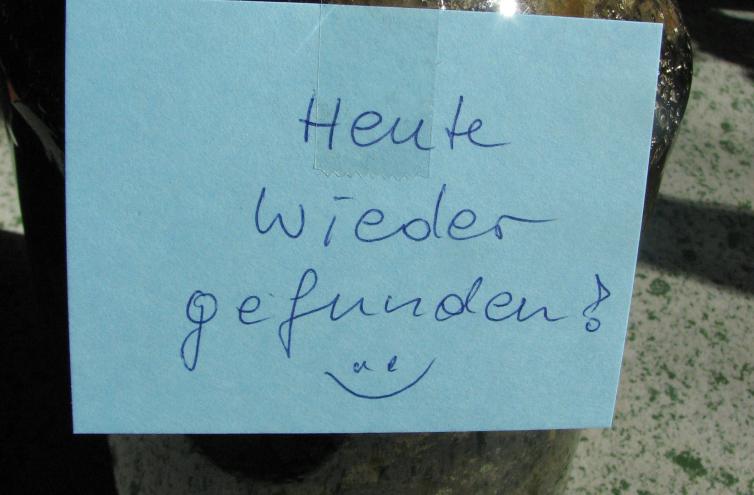 Heute
wieder
gefunden!